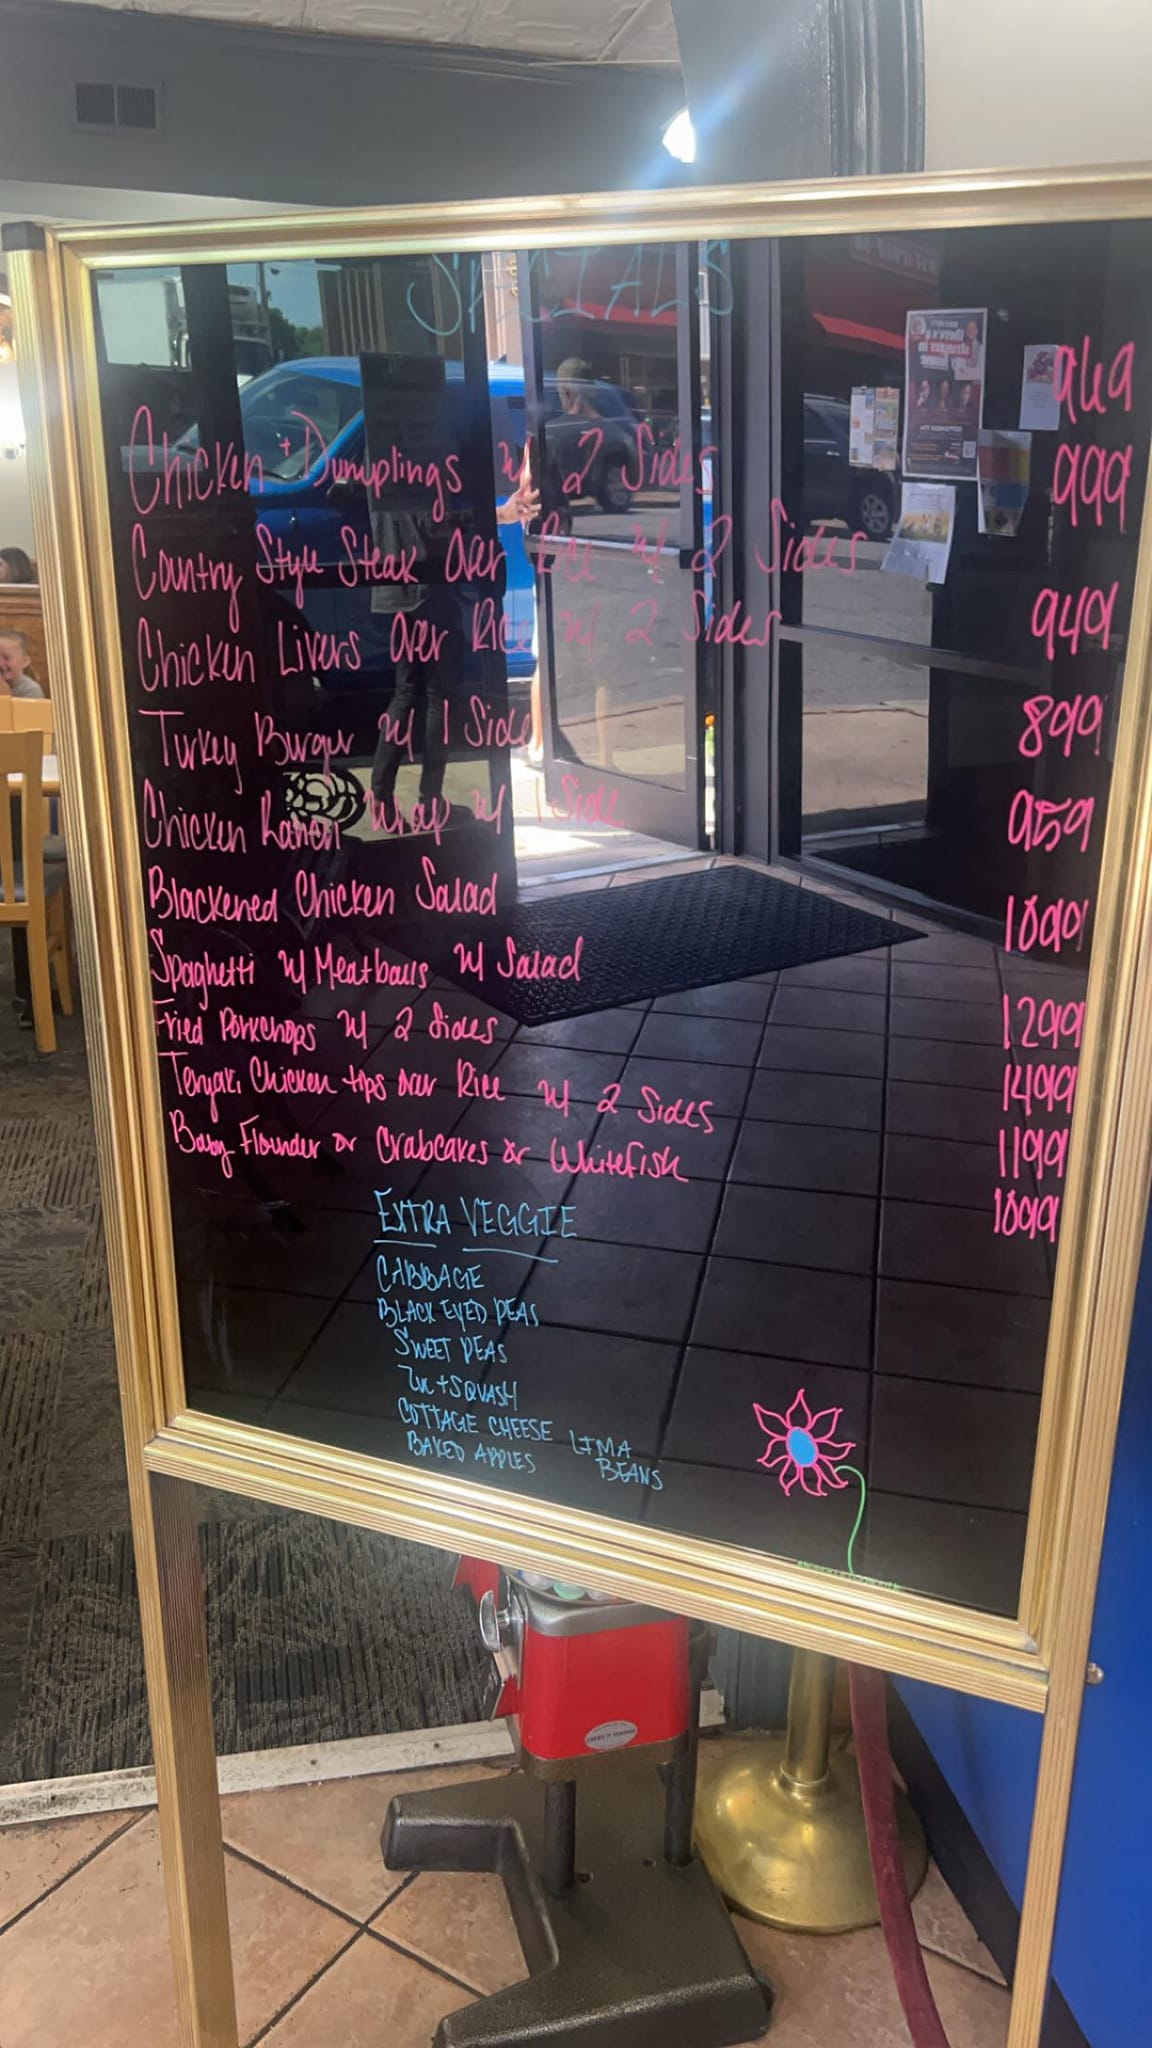 SPECIALS
Chicken + Dumplings w/ 2 Sides 969
Country Style Steak Over Rice w/ 2 Sides 999
Chicken Livers Over Rice w/ 2 Sides 949
Turkey Burger w/ 1 Side 899
Chicken Ranch Wrap w/ 1 Side 959
Blackened Chicken Salad 1099
Spaghetti w/ Meatballs w/ Salad 1299
Fried Porkchops w/ 2 Sides 1499
Teriyaki Chicken tips over Rice w/ 2 Sides 1199
Baby Flounder or Crabcakes or Whitefish 1099
EXTRA VEGGIE
CABBAGE
BLACK EYED PEAS
SWEET PEAS
ZUC + SQUASH
COTTAGE CHEESE
BAKED APPLES
LIMA
BEANS